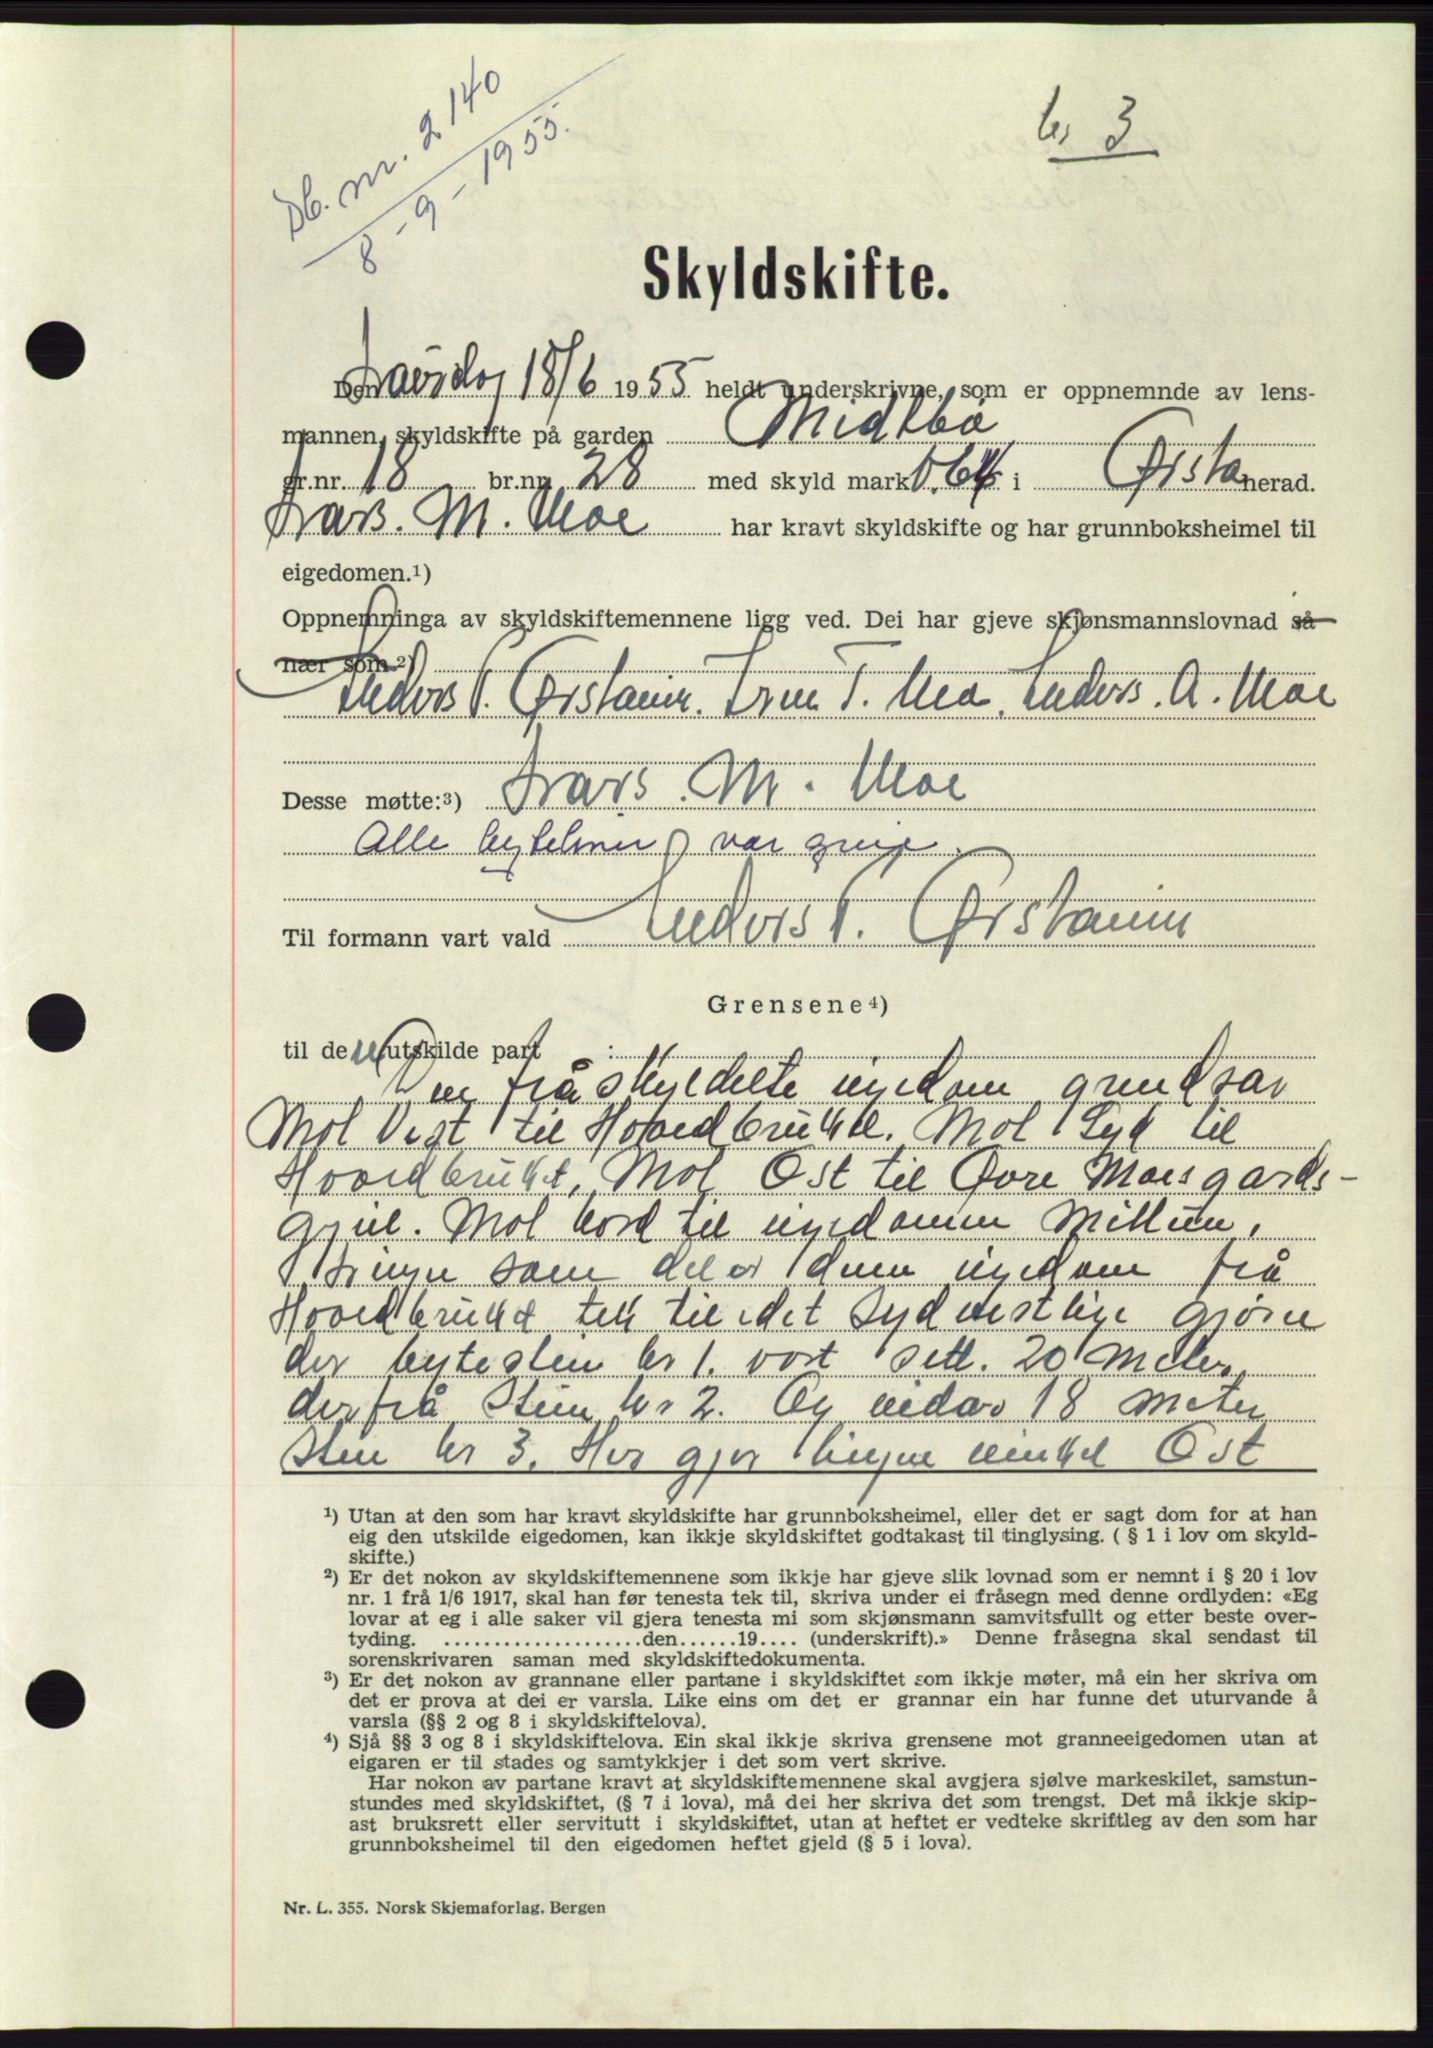 Db. nr. 2140
8-9-1955.
Nr 3
Skyldskifte.
Den Laurdag 18/6 1955 heldt underskrivne, som er oppnemnde av lens-
mannen, skyldskifte på garden Midtbø
gr.nr. 18 br.nr. 28 med skyld mark 0.64 i Ørsta herad.
Lars. M. Moe har kravt skyldskifte og har grunnboksheimel til
eigedomen.¹)
Oppnemninga av skyldskiftemennene ligg ved. Dei har gjeve skjønsmannslovnad så
nær som ²)
Anders P. Ørstavik. T. Moe. Anders. A. Moe
Desse møtte:³) Lars. M. Moe
Alle var
Til formann vart vald Anders P. Ørstavik
Grensene⁴)
til den utskilde part :
Den fråskyldelte eigedom grensar
Mot Vest til Hovedbruket. Mot Syd til
Hovedbruket, Mot Ost til Øvre Moesgards-
gjeil. Mot Nord til eigedomen
Linja som deler denne eigedom frå
Hovedbruket tek til i det sydvestlige hjørne
der bytesten Nr 1. vart sett. 20 Meter
derfrå Stein Nr 2. Og vidare 18 meter
Sten Nr 3. Her gjer linjne vinkel Ost
¹) Utan at den som har kravt skyldskifte har grunnboksheimel, eller det er sagt dom for at han
eig den utskilde eigedomen, kan ikkje skyldskiftet godtakast til tinglysing. ( § 1 i lov om skyld-
skifte.)
²) Er det nokon av skyldskiftemennene som ikkje har gjeve slik lovnad som er nemnt i § 20 i lov
nr. 1 frå 1/6 1917, skal han før tenesta tek til, skriva under ei fråsegn med denne ordlyden: «Eg
lovar at eg i alle saker vil gjera tenesta mi som skjønsmann samvitsfullt og etter beste over-
tyding. ....................den......19.... (underskrift).» Denne fråsegna skal sendast til
sorenskrivaren saman med skyldskiftedokumenta.
³) Er det nokon av grannane eller partane i skyldskiftet som ikkje møter, må ein her skriva om
det er prova at dei er varsla. Like eins om det er grannar ein har funne det uturvande å
varsla (§§ 2 og 8 i skyldskiftelova).
⁴) Sjå §§ 3 og 8 i skyldskiftelova. Ein skal ikkje skriva grensene mot granneeigedomen utan at
eigaren er til stades og samtykkjer i det som vert skrive.
Har nokon av partane kravt at skyldskiftemennene skal avgjera sjølve markeskilet, samstun-
stundes med skyldskiftet, (§ 7 i lova), må dei her skriva det som trengst. Det må ikkje skip-
ast bruksrett eller servitutt i skyldskiftet, utan at heftet er vedteke skriftleg av den som har
grunnboksheimel til den eigedomen heftet gjeld (§ 5 i lova).
Nr. L. 355. Norsk Skjemaforlag, Bergen